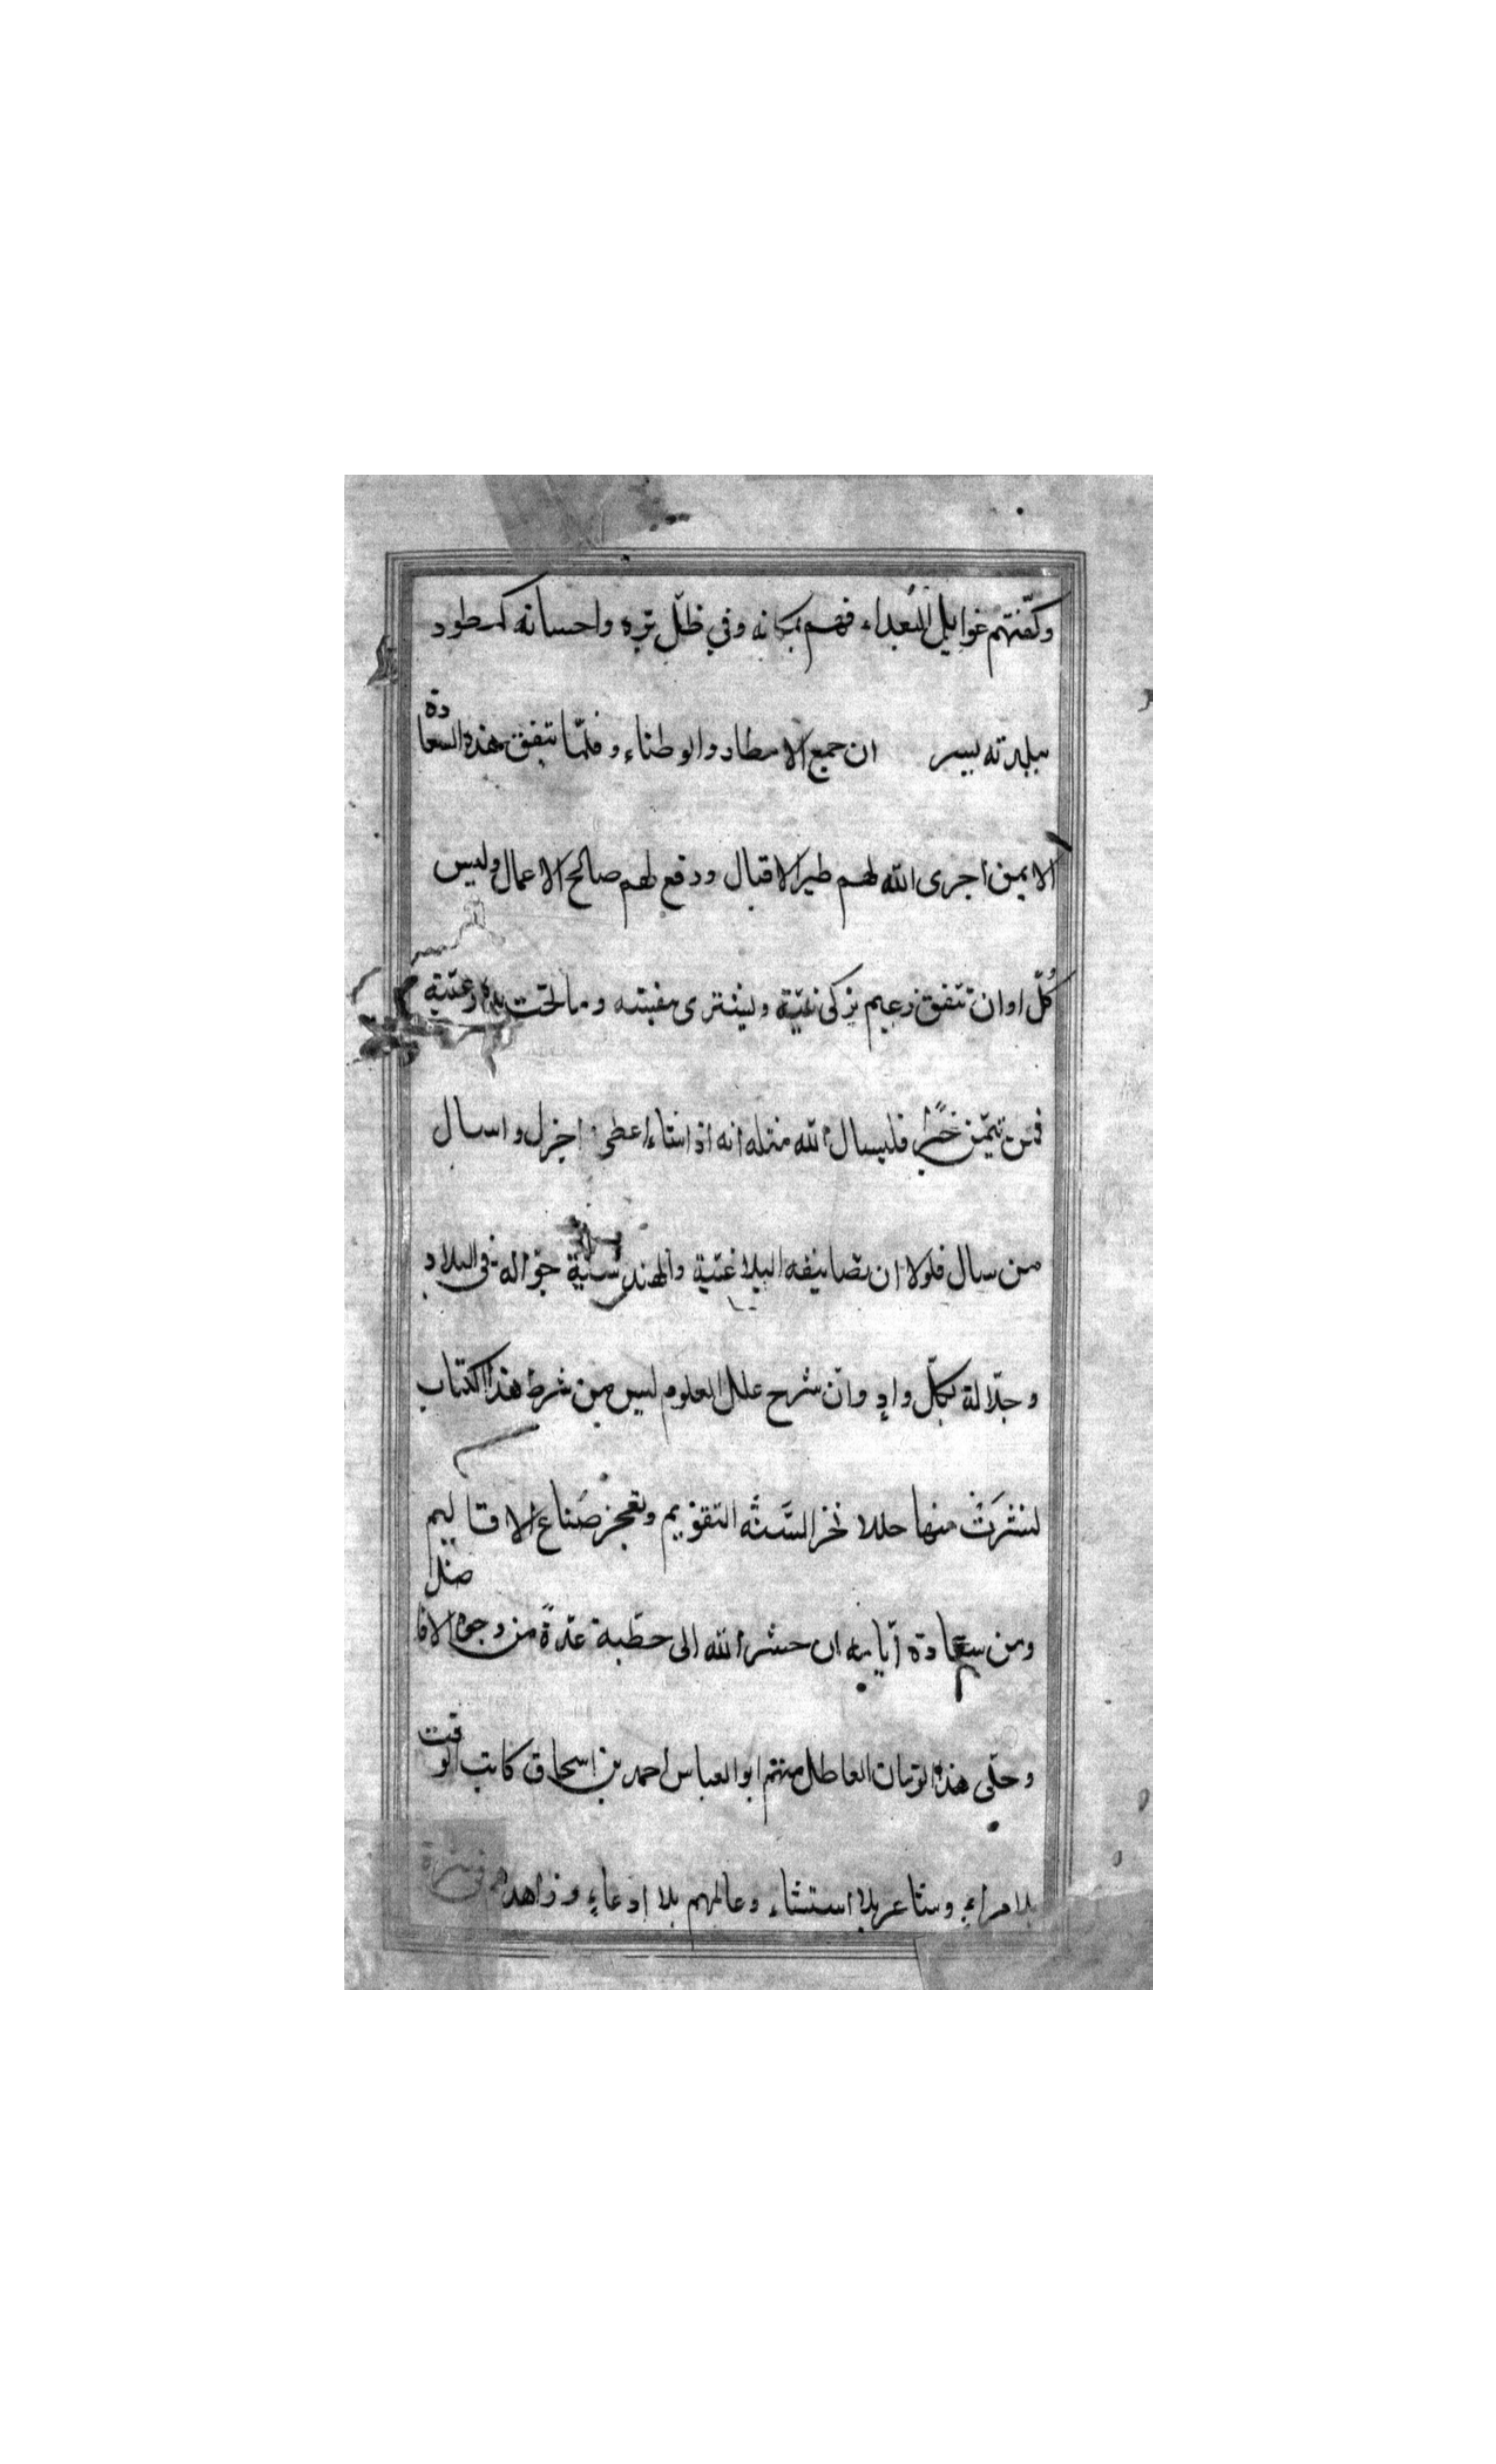 وكفّتهم غوايل البعداء فهم بمكانه وفي ظلّ برّه واحسانه كطود
ببلدته ليسر ان جميع الامطار والوطناء وقلّما تتفق هذه السعادة
الا بمن اجرى الله لهم طير الاقبال ودفع لهم صالح الاعمال وليس
كُلّ اوان تتّفق زعيم يزكى ويشترى مغبته وما رعيّة
فمن تيمّن فليسال الله مثله انه اذا شاء اعطى اجزل واسال
من سال فلولا ان تصانيفه البلاغيّة والهندسيّة جوّاله فى البلاد
وجلّالة بكلّ وادٍ وانّ شرح علل العلوم ليس من شرط هذا الكتاب
لنشرت منها حللا التقويم وتعجز صناع الاقاليم
ومن سعادة ايّامه ان حشر الله الى خطّبة عدّةً من وجوه الافاضل
وحلّى هذا الزمان العاطل منهم ابو العباس احمد بن اسحاق كاتب الوقت
بلا مراءٍ وشاعر بلا استثناء وعالمهم بلا ادعاءٍ وزاهدهم